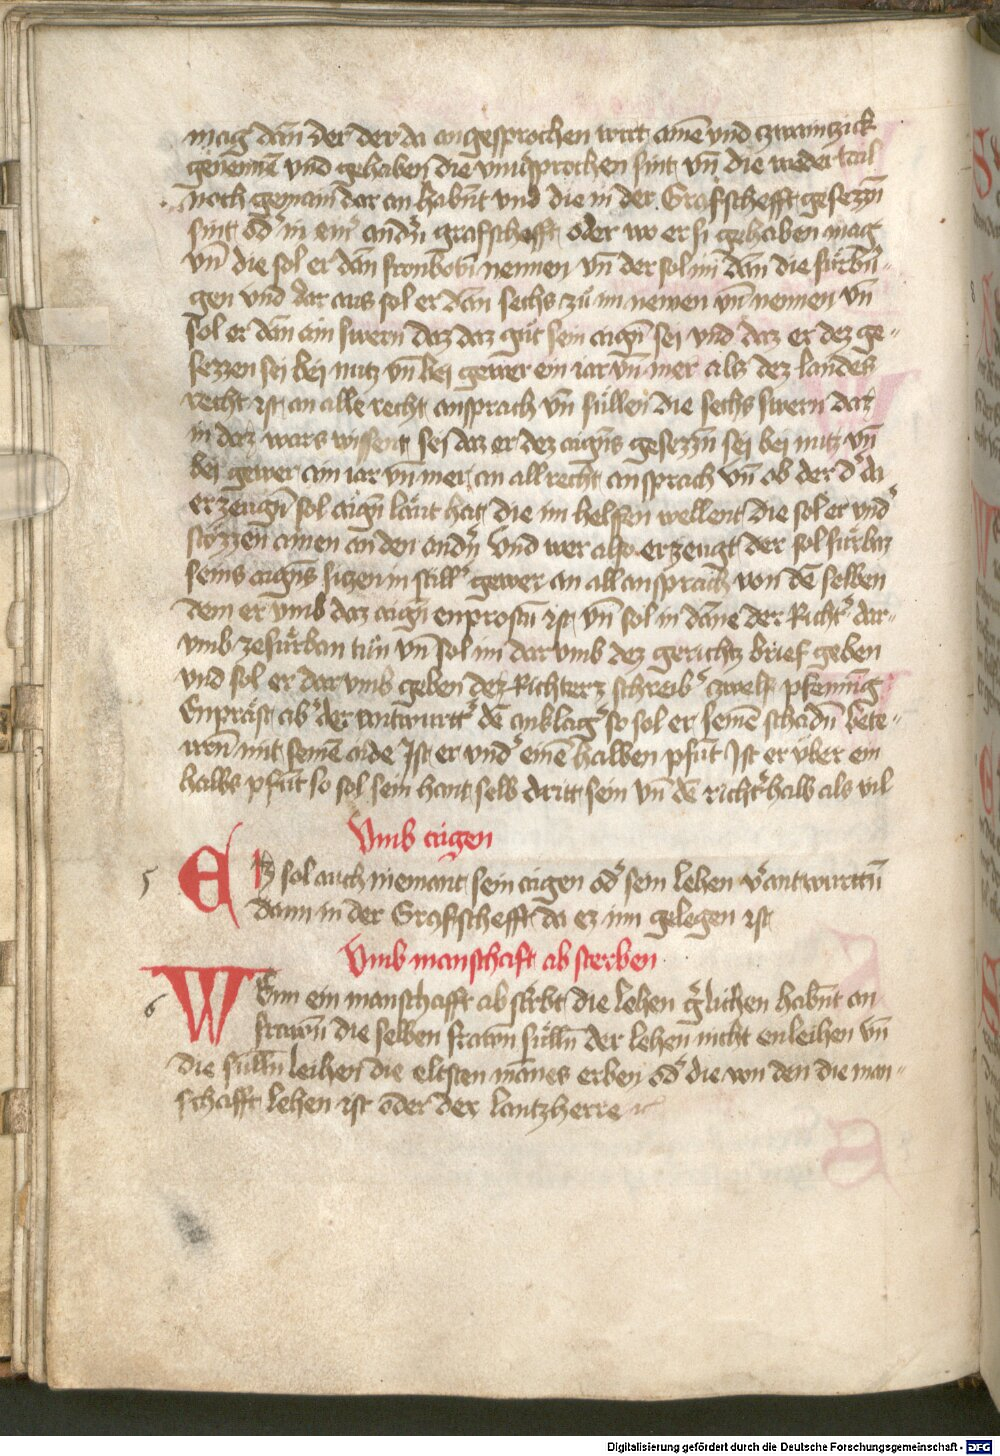 mag dan̄ der der da angesprochen wirt ainē vnd zwaintzick
genennē vnd gehaben die vnuˢprochen sint vn̄ die weder tail
noch gemain dar an habn̄t vnd die in der Grafschefft gesezzn̄
sint odˀ in einˀ andˀn grafschefft oder wo er si gehaben mag
vn̄ die sol er dan̄ fronbotn̄ nennen vn̄ der sol im dan̄ die fürbrīn⸗
gen vnd dar aus sol er dan̄ sechs zů im nemen vn̄ nennen vn̄
sol er dan̄ ain swern daz daz gůt sein aign̄ sei vnd daz er dez ge⸗
sezzen sei bej nutz vn̄ bej gewer ein iar vn̄ mer als dez landes
recht ist an alle recht ansprach vn̄ süllen die sechs swern daz
in daz wars wissent sei daz er dez aigns gesezzn̄ sej bei nutz vn̄
bei gewer ain iar vn̄ mer an all recht ansprach vn̄ ob der dˀ da
erzeugn̄ sol aign̄ läut hat die im helffen wellent die sol er vndˀ
stözzen ainen an den andˀn Vnd wer also erzeugt der sol fürbaz
seins aigens sitzen in stillˀ gewer an all ansprach von dē selben
dem er vmb daz aign̄ enprostn̄ ist vn̄ sol in dañe der Richtˀ dar⸗
vmb zefürban tůn vn̄ sol im darvmb dez gerichtz brief geben
vnd sol er darvmb geben dez Richterz schreibˀ zwelf pfenning
Enpräst abˀ der antwurttˀ dē anklagˀ so sol er seinē schadn̄ bete⸗
wrn̄ mit seinē aide Ist er vndˀ einē halben pfūt Ist er über ein
halbs pfūt so sol sein hant selb dritt sein vn̄ dē richtˀ halb als vil
Vmb aigen
5 Ez sol auch niemant sein aigen odˀ sein lehen vˀantwurttn̄
dann in der Grafschefft da ez inn gelegen ist
Vmb manschaft ab sterben
6 WEnn ein manschafft ab stirbt die lehen gˀlichen habn̄t an
frawn̄ die selben frawn sülln̄ der lehen nicht enleihen vn̄
die sülln̄ leihen die eltsten mānes erben odˀ die von den die man⸗
schafft lehen ist oder der lantzherre
Digitalisierung gefördert durch die Deutsche Forschungsgemeinschaft - DFG